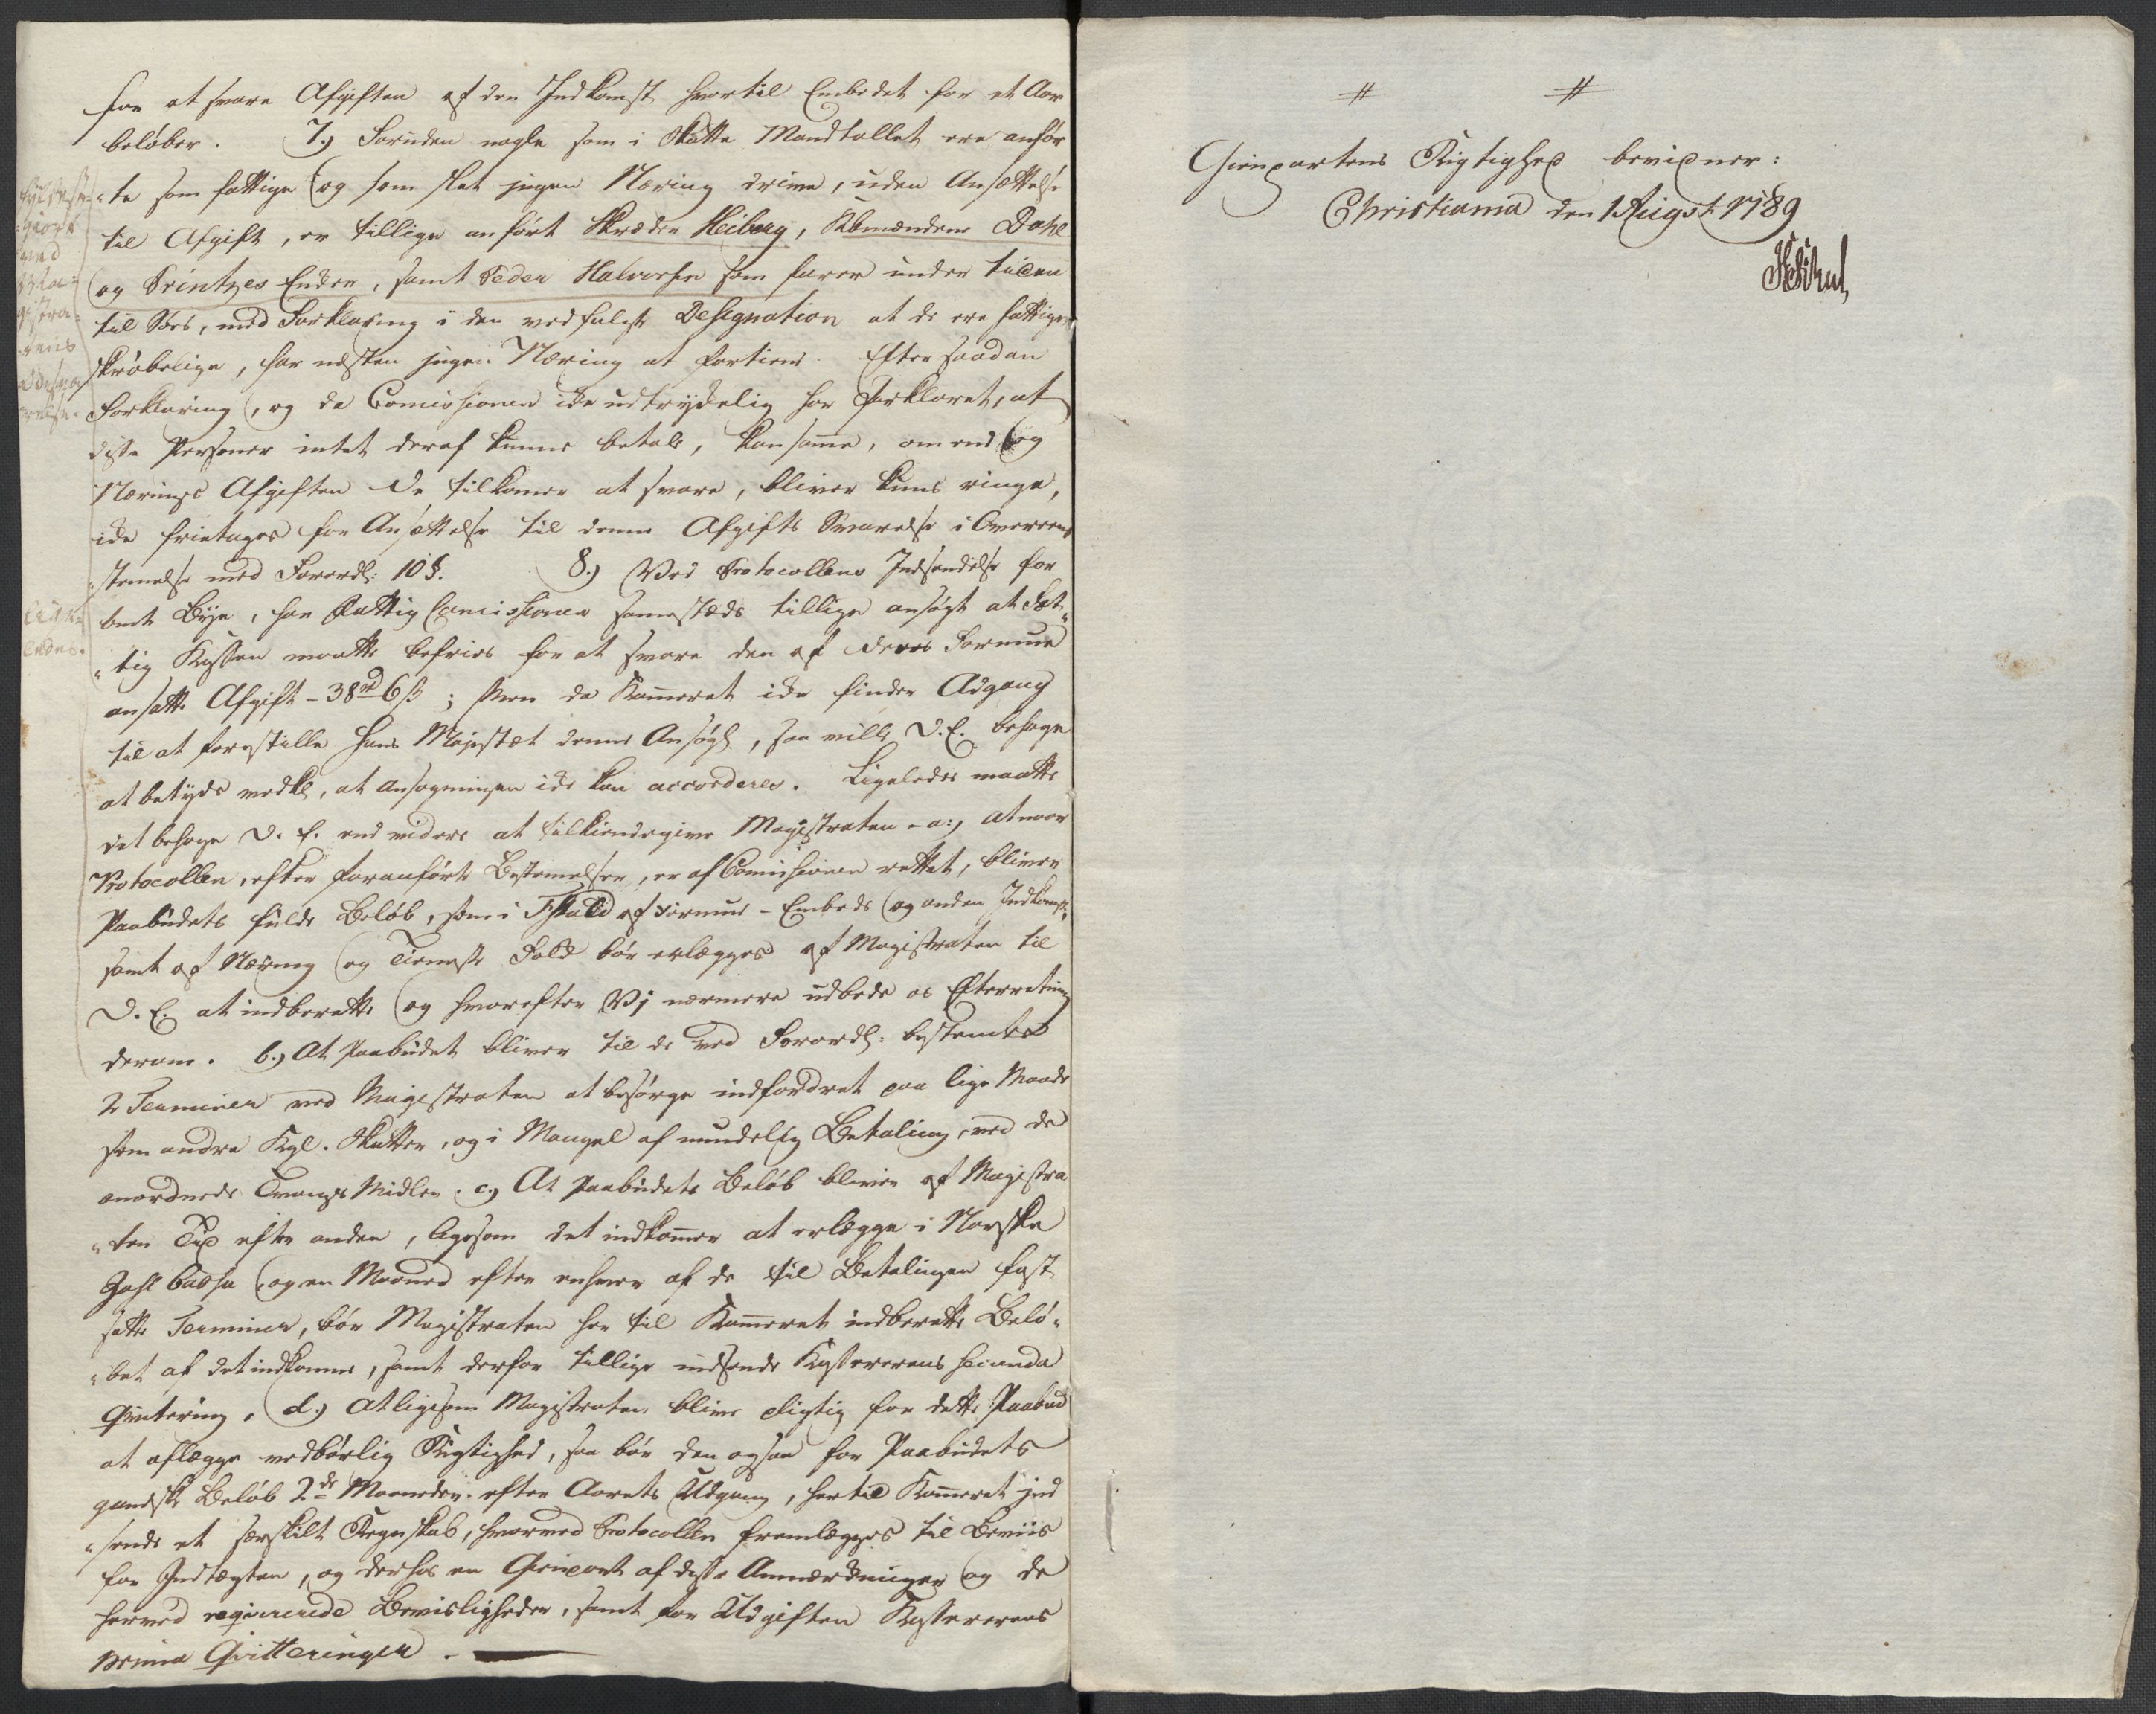 for at svare Afgiften af den Indkomst hvortil Embedet for et Aar
beløber. 7.) Foruden nogle som i Skatte Mandtallet ere anfør
"te som fattige og som slet ingen Næring drive, uden Ansættelse
til Afgift, er tillige anført Skræder Heiberg, Kbmændene Dahl
og Printzes Enke, samt Peder Halvorsen som farer under tiden
til Søes, med Forklaring i den vedfulgte Designation at de ere fattige
skrøbelige, har næsten ingen Næring at fortiene. Efter saadan
Forklaring, og da Comissionen icke udtrykkelig har forklaret, at
disse Personer intet deraf kunne betale, kan samme, om end og
Nærings Afgiften de tilkomer at svare, bliver kuns ringe,
icke frietages for Ansættelse til denne Afgifts Svarelse i Overeens
"stemmelse med Forordn: 10 §. 8.) Ved Protocollens Indsendelse for
bemte Bye, har Fattig Comissionen samestæds tillige ansøgt at Fat
"tig Kassen maatte befries for at svare den af deres Formue
ansatte Afgift - 38 rd 6 s; Men da Kammeret icke finder Adgang
til at forestille Hans Majestæt denne Ansøgn, saa ville D. E. behage
at betyde vedk, at Ansøgningen icke kan accorderes. Ligeledes maatte
det behage D. E. end videre at tilkiendegive Magistraten - a:) At naar
Protocollen, efter foranførte Bestemelser, er af Comissionen rettet, bliver
Paabudets fulde Beløb, som i Forhold af Formue - Embeds og anden Indkomst,
samt af Næring og Tieneste Folk bør erlægges af Magistraten til
D. E. at indberette og hvorefter Vi nærmere udbede os Efterretning
derom. b.) At Paabudet bliver til de ved Forordn: bestemte
2 Terminer ved Magistraten at besørge indfordret paa lige Maade
som andre Kgl. Skatter, og i Mangel af mindelig Betaling, ved de
anordnede Tvangs Midler. c.) At Paabudets Beløb bliver af Magistra
"ten Tid efter anden, ligesom det indkommer at erlægge i Norske
Zahl Cassa og en Maaned efter enhver af de til Betalingen fast
satte Terminer, bør Magistraten her til Kammeret indberette Belø"
"bet af det indkomne, samt derfor tillige indsende Kassererens secunda
Qvitering. d.) At ligesom Magistraten blive pligtig for dette Paabud
at aflægge vedbørlig Rigtighed, saa bør den ogsaa for Paabudets
gandske Beløb 2de Maaneder efter Aarets Udgang, hertil Kammeret ind
"sende et særskilt Regnskab, hvorved Protocollen fremlægges til Beviis
for Indtægten, og derhos en Gienpart af disse Anmærkninger og de
herved reqvirerede Bevisligheder, samt for Udgiften Kassererens
prima Qvitteringer.
# #
Gienpartens Rigtighed bevidner:
Christiania den 1 August 1789